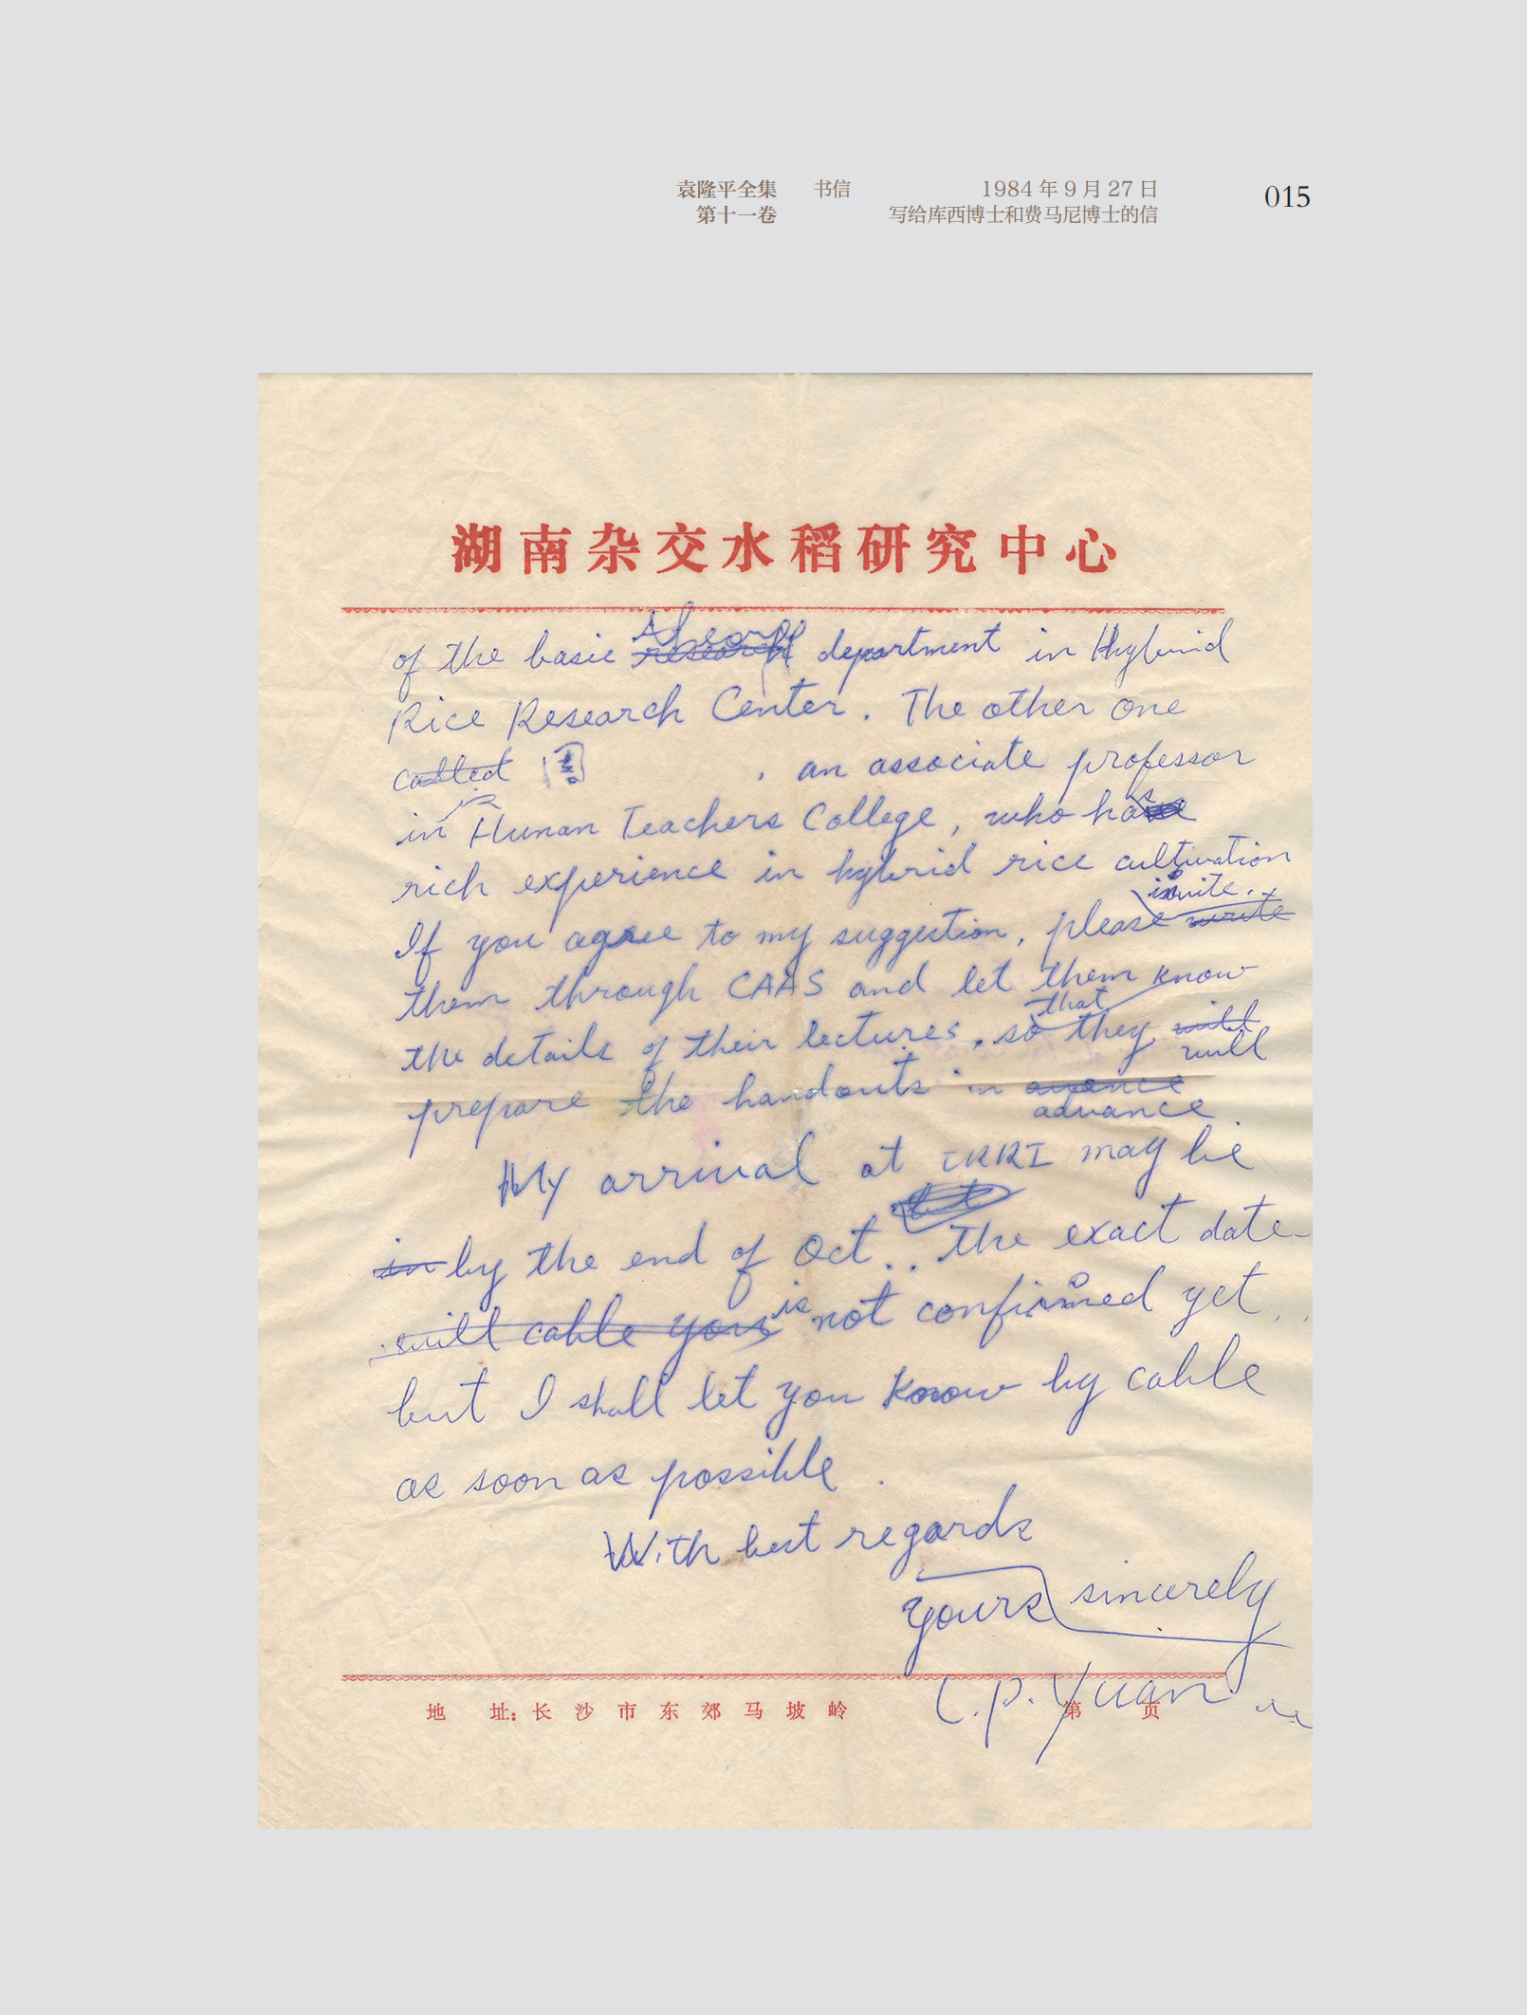 袁隆平全集 书信 1984 年 9 月 27 日 015
第十一卷 写给库西博士和费马尼博士的信
湖南杂交水稻研究中心
of the basic research department in Hybrid
Rice Research Center. The other one
called 周 , an associate professor
in Hunan Teachers College, who has
rich experience in hybrid rice cultivation
invite.
If you agree to my suggestion, please write
them through CAAS and let them know
that
the details of their lectures, so they will
will
prepare the handouts in
advance
My arrival at IRRI may be
but
in by the end of Oct.. The exact date
will cable you is not confirmed yet
but I shall let you know by cable
as soon as possible.
With best regards
Yours sincerely
L.P. Yuan
地 址: 长 沙 市 东 郊 马 坡 岭 第 页